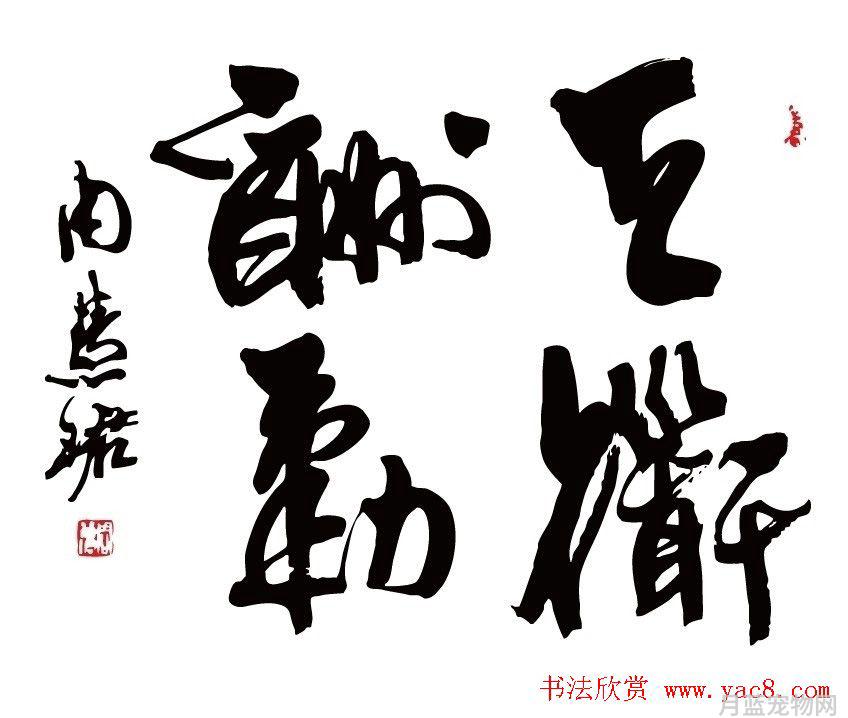 天衜
酬勤
周慧珺
书法欣赏 www.yac8.com
月蓝宠物网